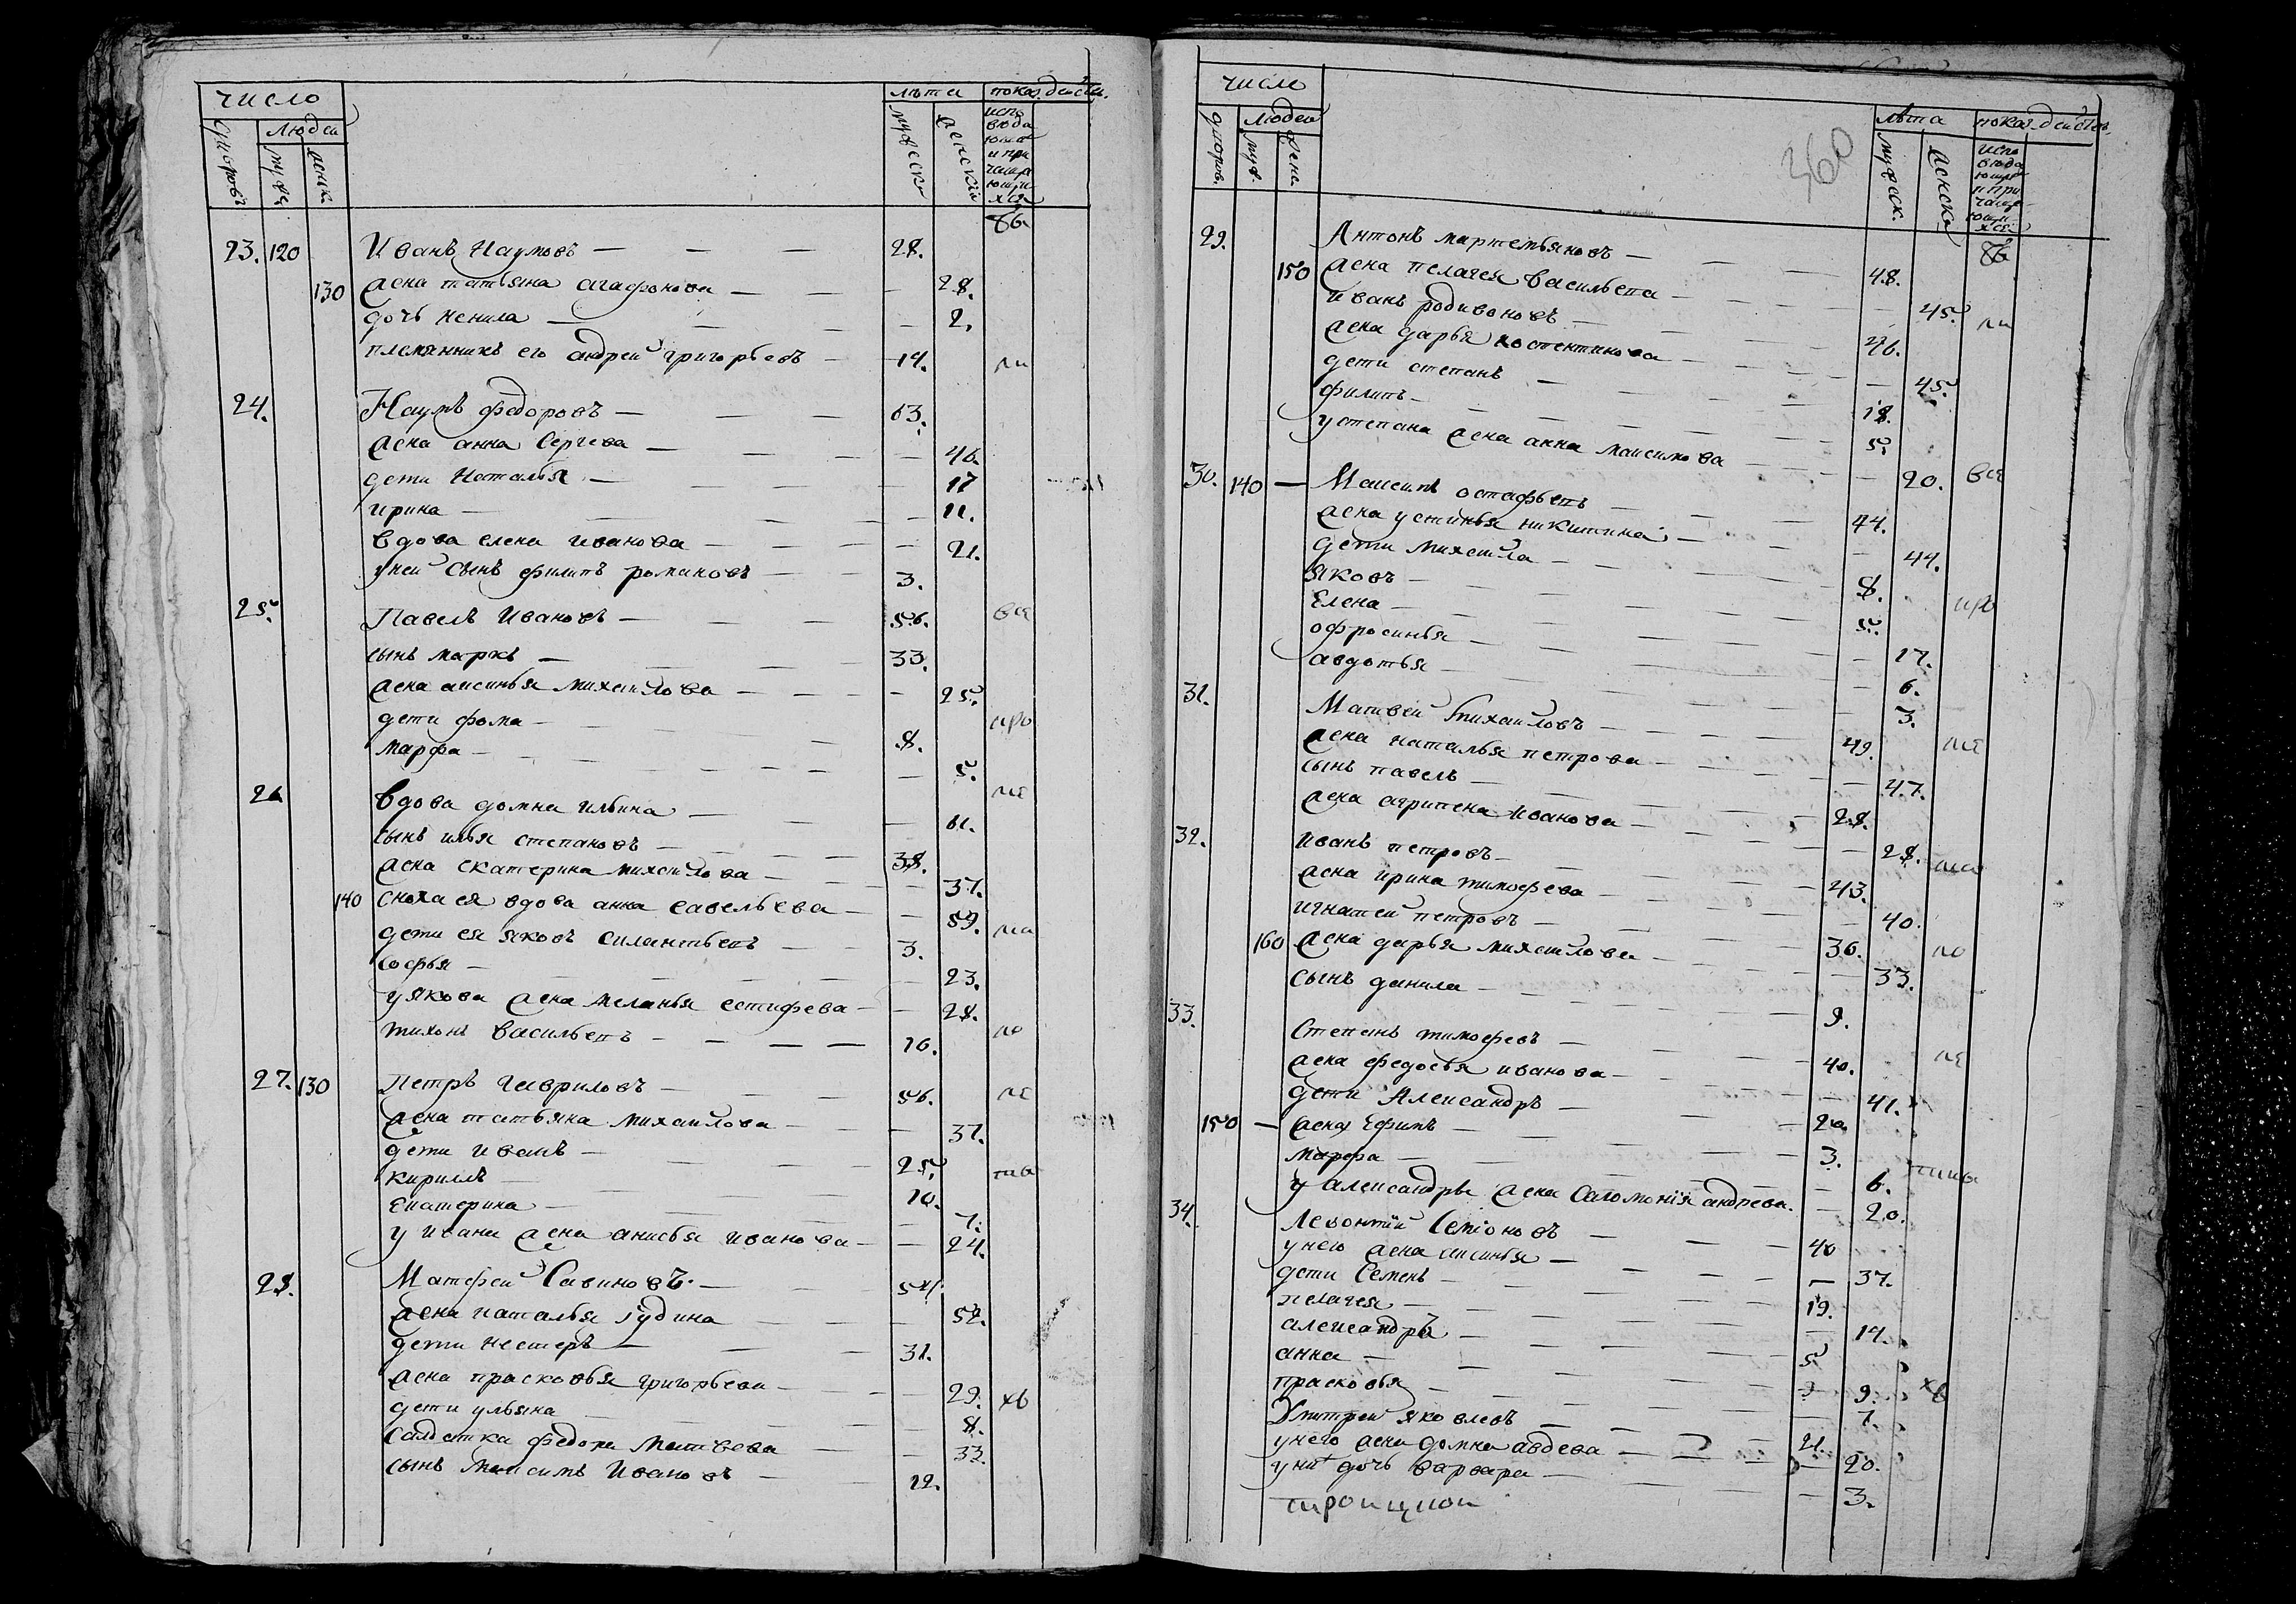 число
лѣта показ. дейст.
дворовъ людей муже. женс.
мужеск женскiй испо вѣда ютъ и при чаща ютъ ихся
86.
23. 120 Иванъ Наумовъ — 28.
130 жена татьяна агафонова — 28.
дочь Ненила — 2.
племянникъ его андрей григорьевъ — 14.
24. Наумъ федоровъ — 63.
жена анна Сергева — 46.
дети Наталья — 17
ирина — 11.
вдова елена иванова — 21.
у ней сынъ филипъ романовъ — 3.
25. Павелъ Ивановъ — 56. вя
сынъ маркъ — 33.
жена аксинья михайлова — 25.
дети фома — 8.
марфа — 5.
26 вдова домна ильина — 61.
сынъ илья степановъ — 38.
жена екатерина михайлова — 37.
140 сноха ея вдова анна савельева — 59.
дети ея яковъ силантьевъ — 3.
софья — 23.
у якова жена меланья естифева — 28.
тихонъ васильевъ — 16.
27. 130 Петръ Гавриловъ — 56.
жена татьяна михайлова — 37.
дети иванъ — 25.
кирилъ — 10.
екатерина — 7.
у ивана жена анисья иванова — 24.
28. Матфей Савиновъ — 54.
жена наталья гудина — 52.
дети нестеръ — 31.
жена прасковья григорьева — 29. хв
дети ульяна — 8.
салдатка федора матвеева — 33.
сынъ максимъ Ивановъ — 12.
360
числ
лѣта показ. дейст.
дворов. людей муж. женс.
мужеск. женска испо вѣда ютъ и при чаща ютъ хся
86
29. Антонъ мартемьяновъ — 48.
150 жена пелагея васильева — 45.
иванъ родивоновъ — 46.
жена дарья костентинова — 45.
дети степанъ — 18.
филипъ — 5.
у степана жена анна максимова — 20. вя
30. 140 — Максимъ остафьевъ — 44.
жена устинья никитина — 44.
дети михайла — 8.
яковъ — 5.
Елена — 17.
офросинья — 6.
авдотья — 3.
31. Матвей михайловъ — 49.
жена наталья петрова — 47.
сынъ павелъ — 28.
жена агрипена иванова — 28.
32. иванъ петровъ — 43.
жена ирина тимофева — 40.
игнатей петровъ — 36.
160 жена дарья михайлова — 33.
сынъ данила — 9.
33. Степанъ тимофевъ — 40.
жена федосья иванова — 41.
дети Александръ — 20
150 — Ефимъ — 3.
марфа — 6.
у александра жена Саломонiя андреева. — 20.
34. Левонтiй Семiоновъ — 40
у него жена аксинья — 37.
дети Семенъ — 19.
пелагея — 14.
александръ — 5
анна — 9.
прасковья — 7.
Дмитрей яковлевъ — 21.
у него жена домна авдева — 20.
у них дочь варвара — 3.
троицкой